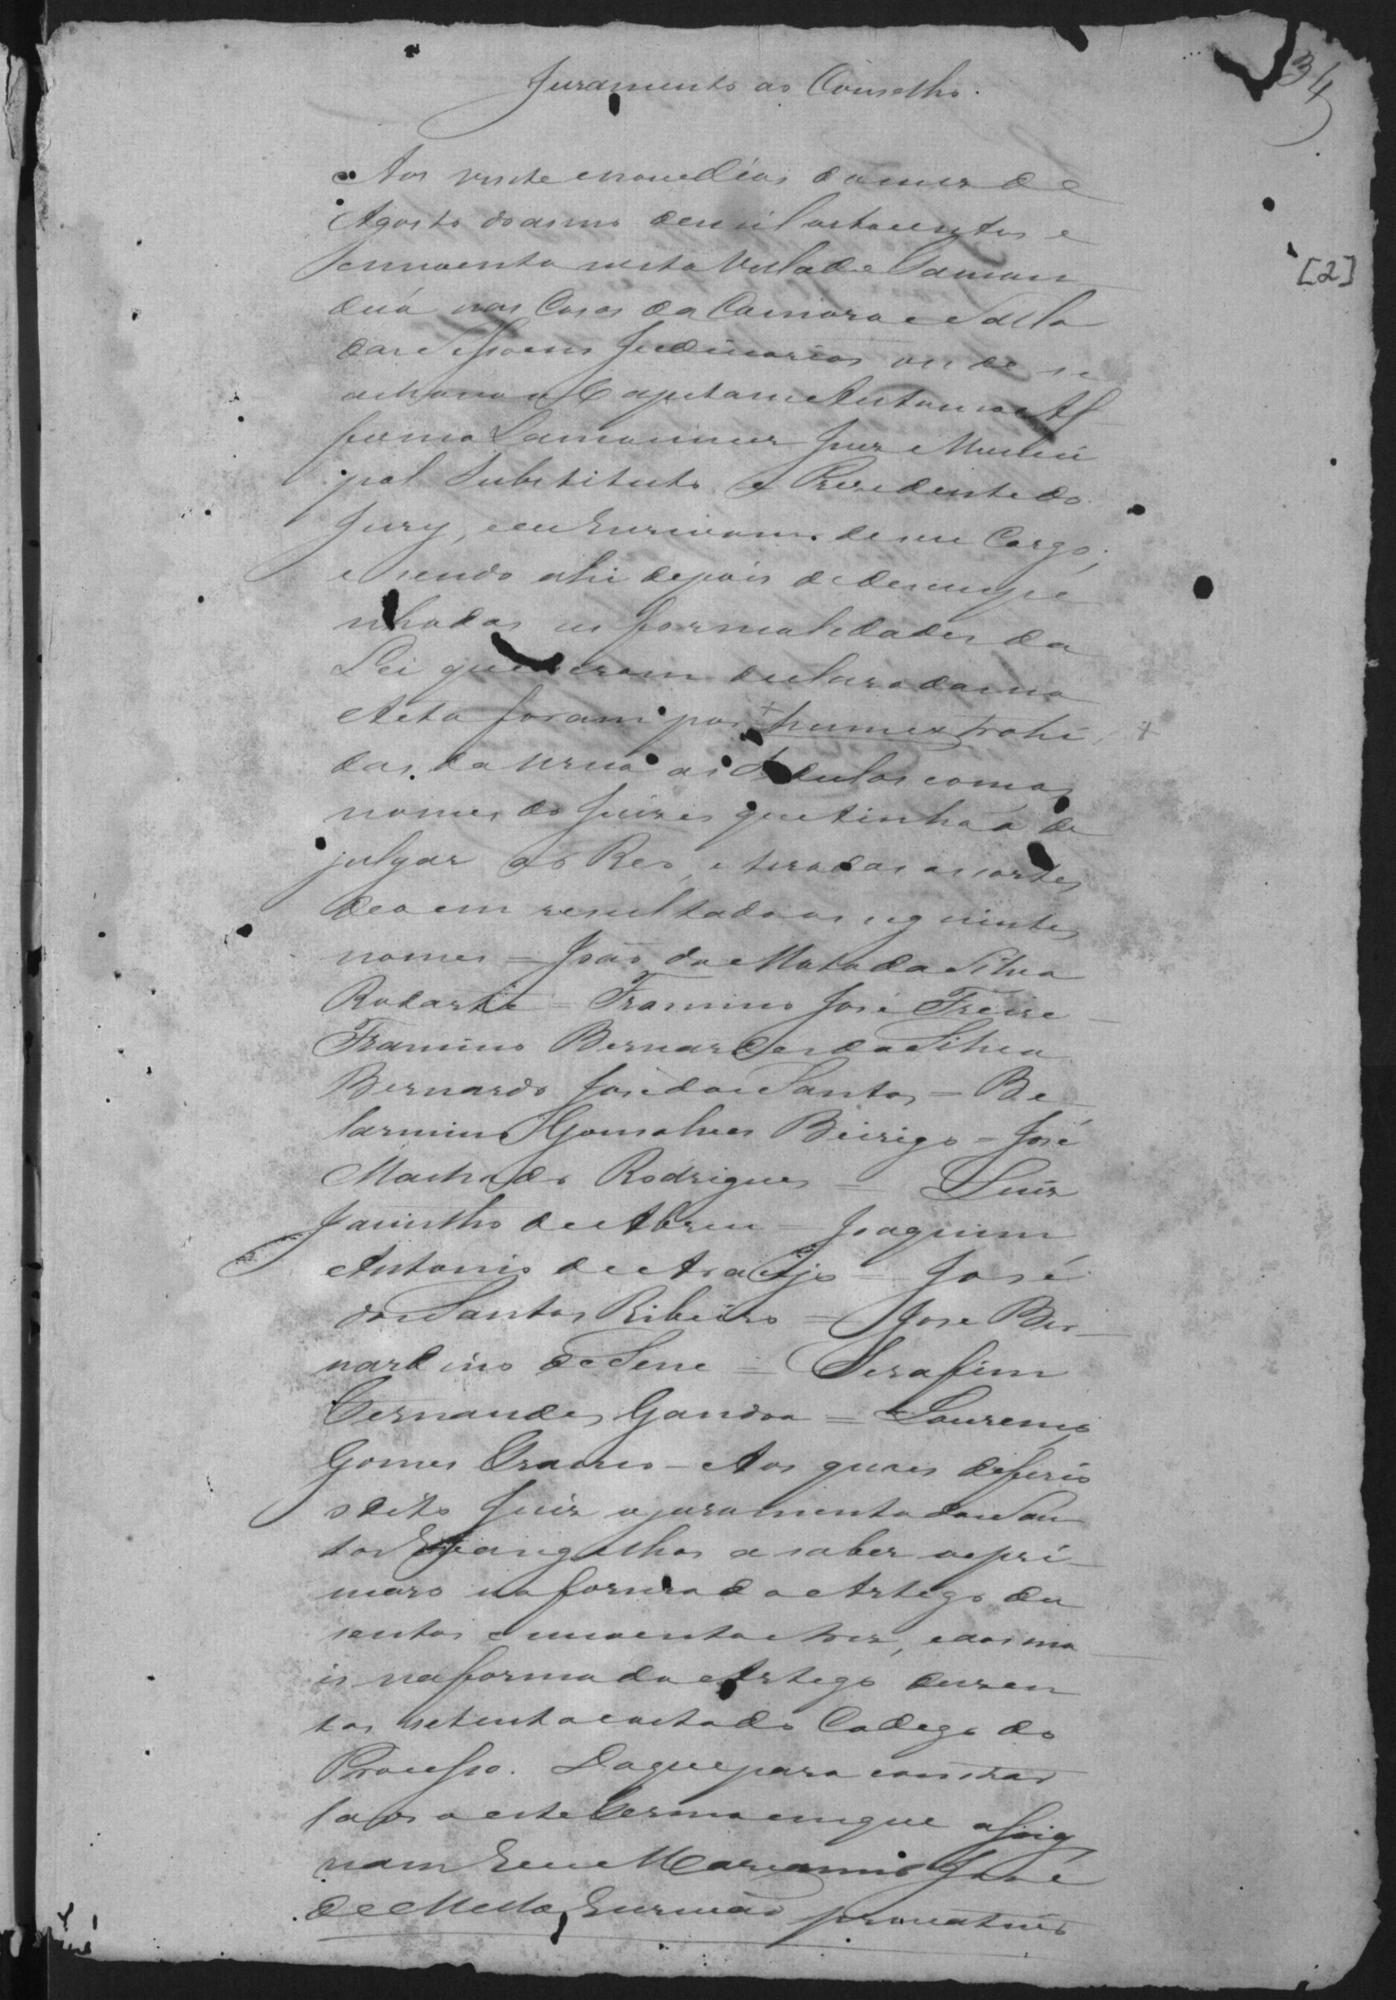 34
Juramento ao Conselho.
Aos vinte enove dias do mez de
Agosto do anno demil oitocentos e
cincoenta nesta Villa de Taman
duá nas Casas da Camara e Salla
das Sessoens Judiciarias onde se
achava o Capitam Antonio Af
fonço Lamounier Juiz Munici
pal Substituto e Prezidente do
Jury, e eu Escrivam de seu Cargo,
e sendo ahi depois de desempe
nhadas as formalidades da
Lei que ficaram declaradas na
Acta foram por + hum extrahi +
das da urna as Sedulas com os
nomes do Juizes que tinhaõ de
julgar ao Reo, e tiradas as sortes
deo em resultado os seguintes
nomes = Joaõ da Mata da Silva
Rodarte = Francisco José Freire
Francisco Bernardes da Silva
Bernardo José dos Santos = Be
larmino Gonsalves Beirigo = José
Machado Rodrigues = Luiz
Jacintho de Abreu = Joaquim
Antonio de Araujo = José
dos Santos Ribeiro = Jose Ber
nardino de Sene = Serafim
Fernandes Gandra = Lourenço
Gomes - Aos quaes deferio
o dito Juiz o juramento dos San
tos Evangelhos a saber ao pri
meiro na forma do Artego du
sentos cincoenta e tres, e aos ma
is na forma do Artego duzen
tos setenta e oito do Codego do
Processo. Do que para constar
faço este Termo em que assig
nam Eu Marianno José
de Mello, Escrivão
[2]